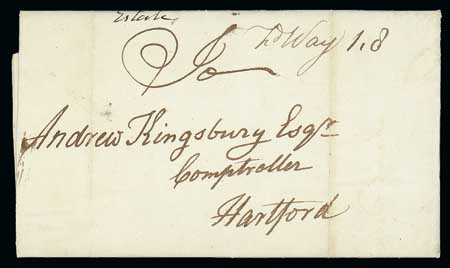 Estate
Way 1.8
Andrew Kingsbury Esqr
Comptroller
Hartford